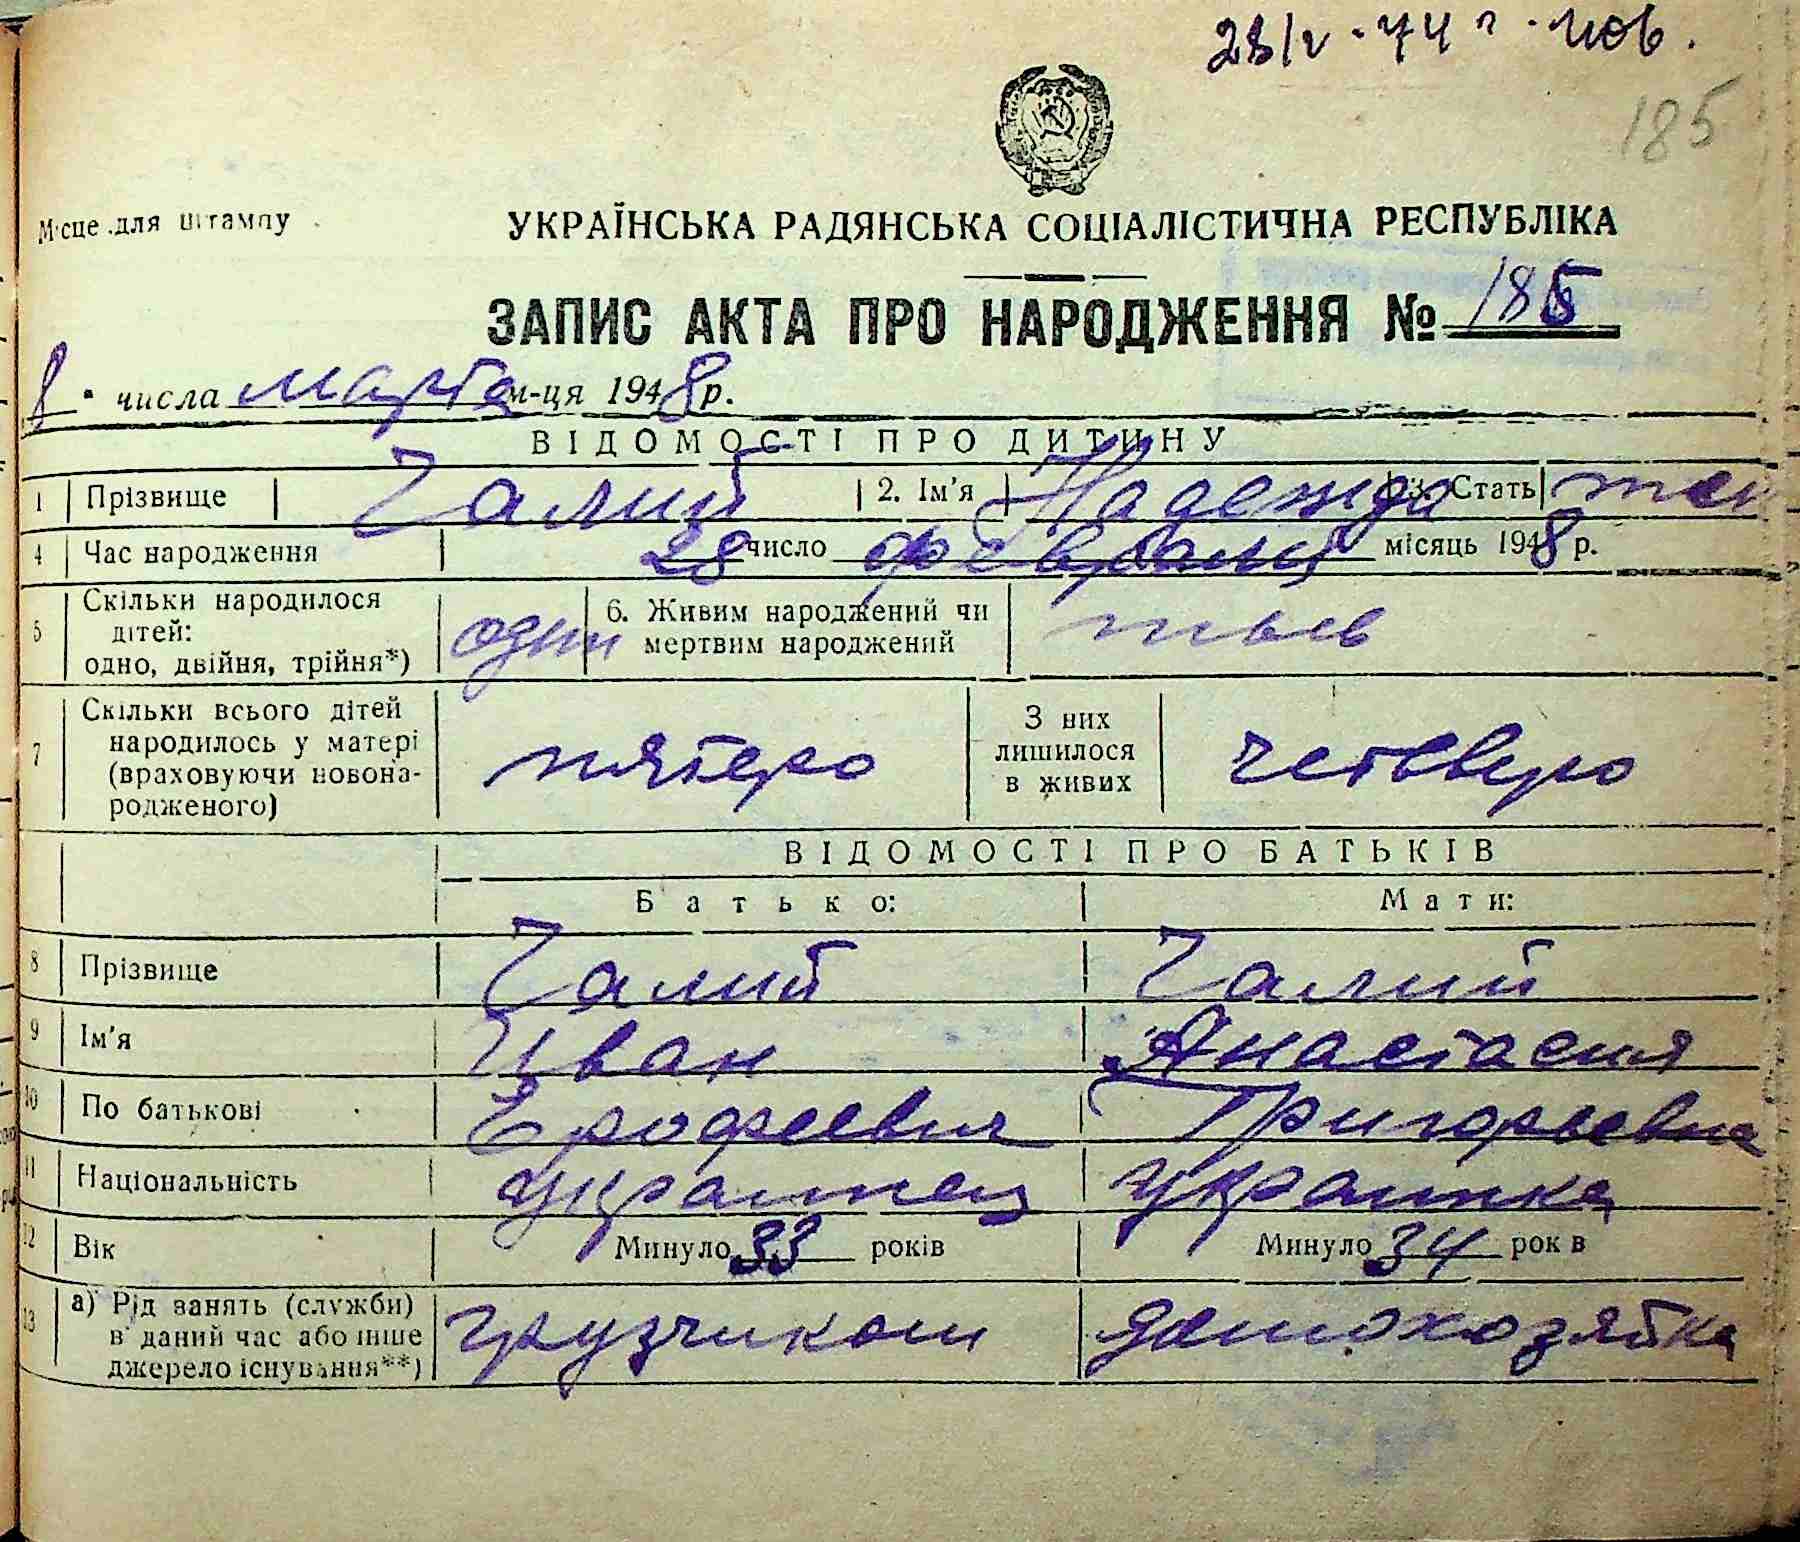 28/V-74 г. пов.
185
Місце для штампу
УКРАЇНСЬКА РАДЯНСЬКА СОЦІАЛІСТИЧНА РЕСПУБЛІКА
ЗАПИС АКТА ПРО НАРОДЖЕННЯ № 185
8 " числа марта м-ця 1948 р.
ВІДОМОСТІ ПРО ДИТИНУ
1 Прізвище Чалий 2. Ім'я Надежда 3. Стать жен
4 Час народження 28 число февраля місяць 1948 р.
5 Скільки народилося дітей: одно, двійня, трійня*) один 6. Живим народжений чи мертвим народжений живь
7 Скільки всього дітей народилось у матері (враховуючи новонародженого) пятеро З них лишилося в живих четверо
ВІДОМОСТІ ПРО БАТЬКІВ
Батько: Мати:
8 Прізвище Чалий Чалий
9 Ім'я Иван Анастасия
10 По батькові Ерофеевич Григорьевна
11 Національність украинец украинка
12 Вік Минуло 33 років Минуло 34 років
13 а) Рід занять (служби) в даний час або інше джерело існування**) грузчиком домохозяйка